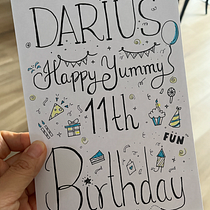 DARIUS
Happy Yummy
11th
FUN
Birthday